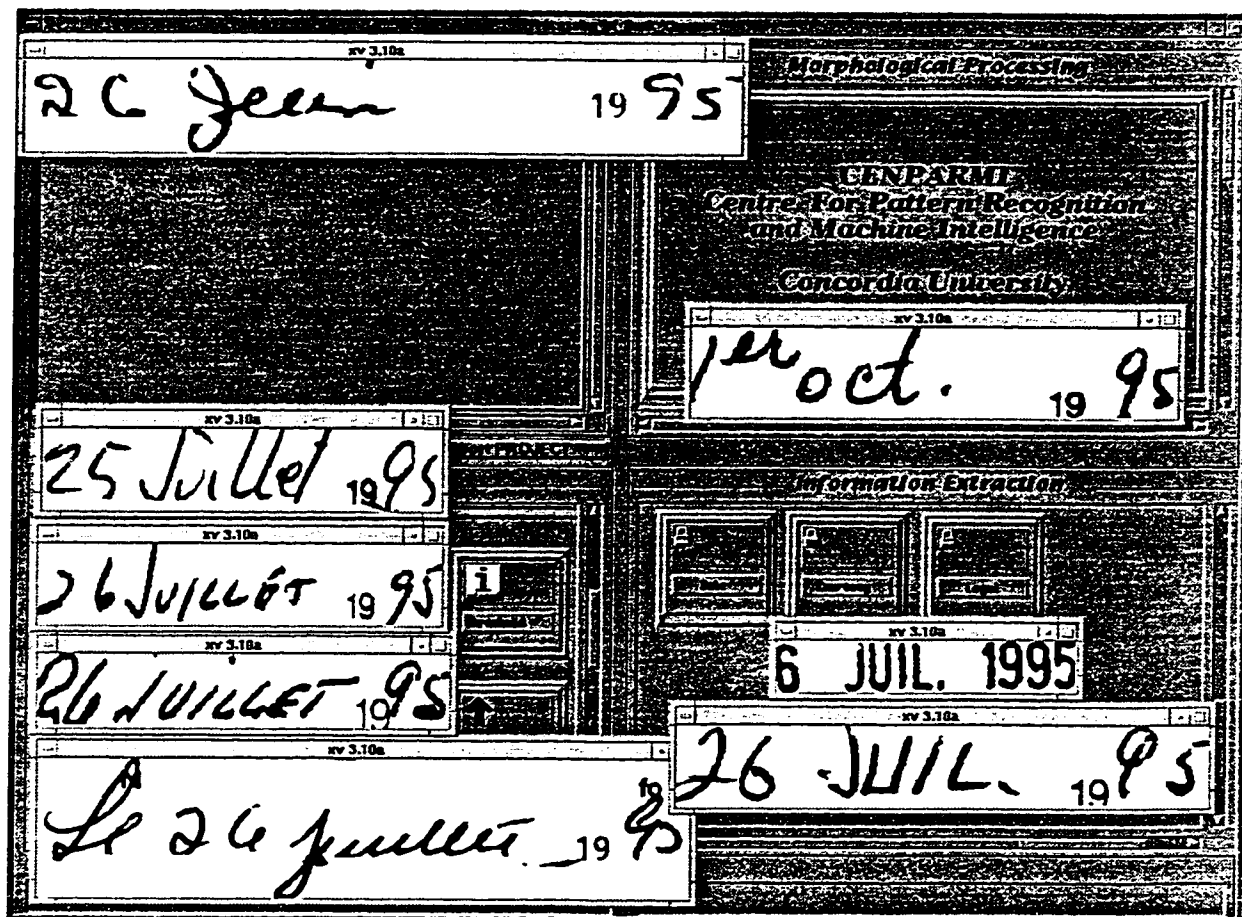 xv 3.10a
26 Juin 19 95
Morphological Processing
CENPARMI
Centre For Pattern Recognition
and Machine Intelligence
Concordia University
xv 3.10a
1er oct. 19 95
xv 3.10a
25 Juillet 19 95
PROJECT
Information Extraction
xv 3.10a
26 JUILLET 19 95
i
xv 3.10a
6 JUIL. 1995
xv 3.10a
26 JUILLET 19 95
xv 3.10a
26 JUIL. 19 95
xv 3.10a
Le 26 juillet 19 95